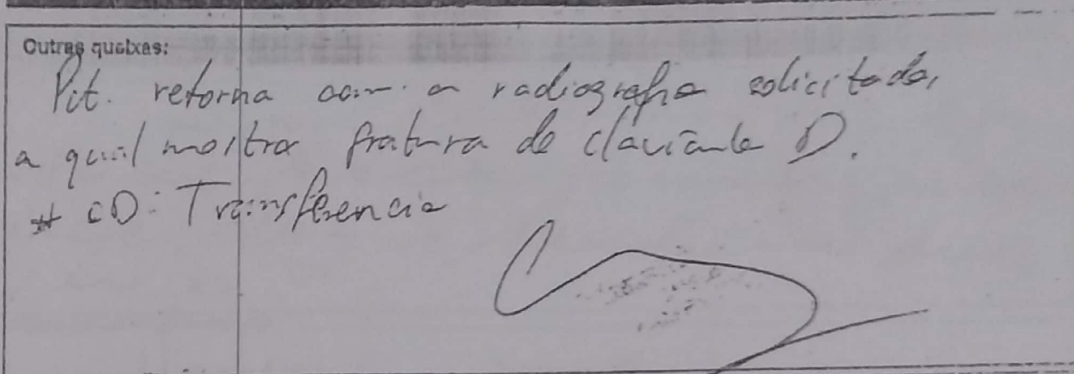 Outras queixas:
Pct. retorna com a radiografia solicitada,
a qual mostra fratura de clavícula D.
# CD: Transferencia